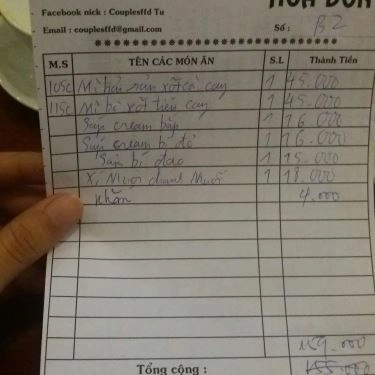 HÓA ĐƠN
Facebook nick : Couplesffd Tu
Email : couplesffd@gmail.com
Số : B2
M.S TÊN CÁC MÓN ĂN S.L Thành Tiền
105c Mì hải sản xốt cà cay 1 45.000
115c Mì bò xốt tiêu cay 1 45.000
Súp cream bắp 1 16.000
Súp cream bí đỏ 1 16.000
bí đao 1 15.000
Xí Muội chanh Muối 1 18.000
khăn 4.000
159.000
Tổng cộng : 155.000